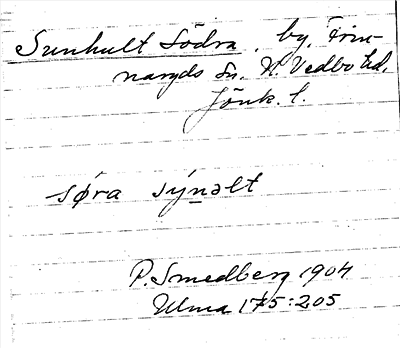 Sunhult Södra, by, Frin-
naryds Sn. N. Vedbo hd.
Jönk. l.
søra sýnəlt
P. Smedberg 1904
Ulma 175:205